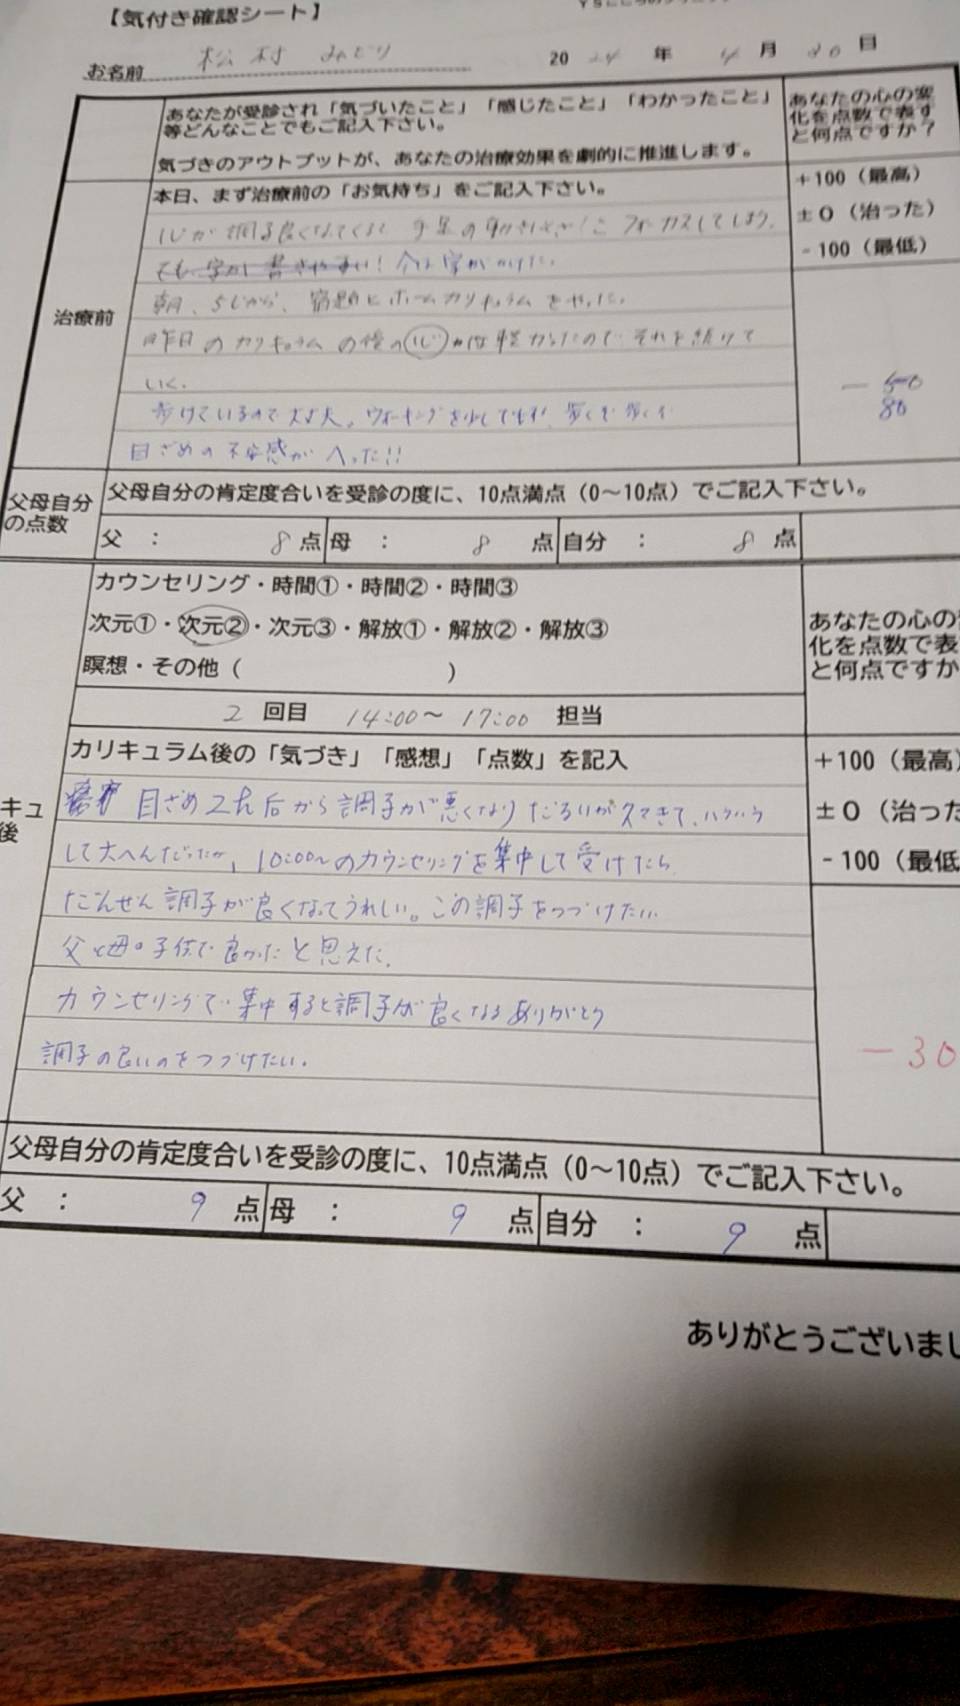 【気付き確認シート】
お名前 松村 みどり 2024年 4月 20日
あなたが受診され「気づいたこと」「感じたこと」「わかったこと」
等どんなことでもご記入下さい。
気づきのアウトプットが、あなたの治療効果を劇的に推進します。
あなたの心の変
化を点数で表す
と何点ですか？
治療前
本日、まず治療前の「お気持ち」をご記入下さい。
+100（最高）
±0（治った）
-100（最低）
心が調子良くなってくると 手足の動きにくさにフォーカスしてしまう。
でも字がし書きやすい！今は字がかけた。
朝、5じから、宿題とホームカリキュラムをやった。
昨日のカリキュラムの後の心がは軽かったのでそれを続けて
いく。
歩けているので大丈夫。ウォーキングを少しでもする 歩くぞ歩くぞ
目ざめの不安感がへった!!
- 50
80
父母自分
の点数
父母自分の肯定度合いを受診の度に、10点満点（0～10点）でご記入下さい。
父 ： 8 点 母 ： 8 点 自分 ： 8 点
カウンセリング・時間①・時間②・時間③
次元①・次元②・次元③・解放①・解放②・解放③
瞑想・その他（ ）
2 回目 14:00～17:00 担当
あなたの心の
化を点数で表
と何点ですか
キュ
後
カリキュラム後の「気づき」「感想」「点数」を記入
+100（最高）
±0（治った
-100（最低
目ざめ 2h后から調子が悪くなり だるいが久々きて、ハラハラ
して大へんだったが、10:00～のカウンセリングを集中して受けたら
だんぜん調子が良くなってうれしい。この調子をつづけたい。
父と母の子供で良かったと思えた。
カウンセリングで集中すると調子が良くなる ありがとう
調子の良いのをつづけたい。
-30
父母自分の肯定度合いを受診の度に、10点満点（0～10点）でご記入下さい。
父 ： 9 点 母 ： 9 点 自分 ： 9 点
ありがとうございまし